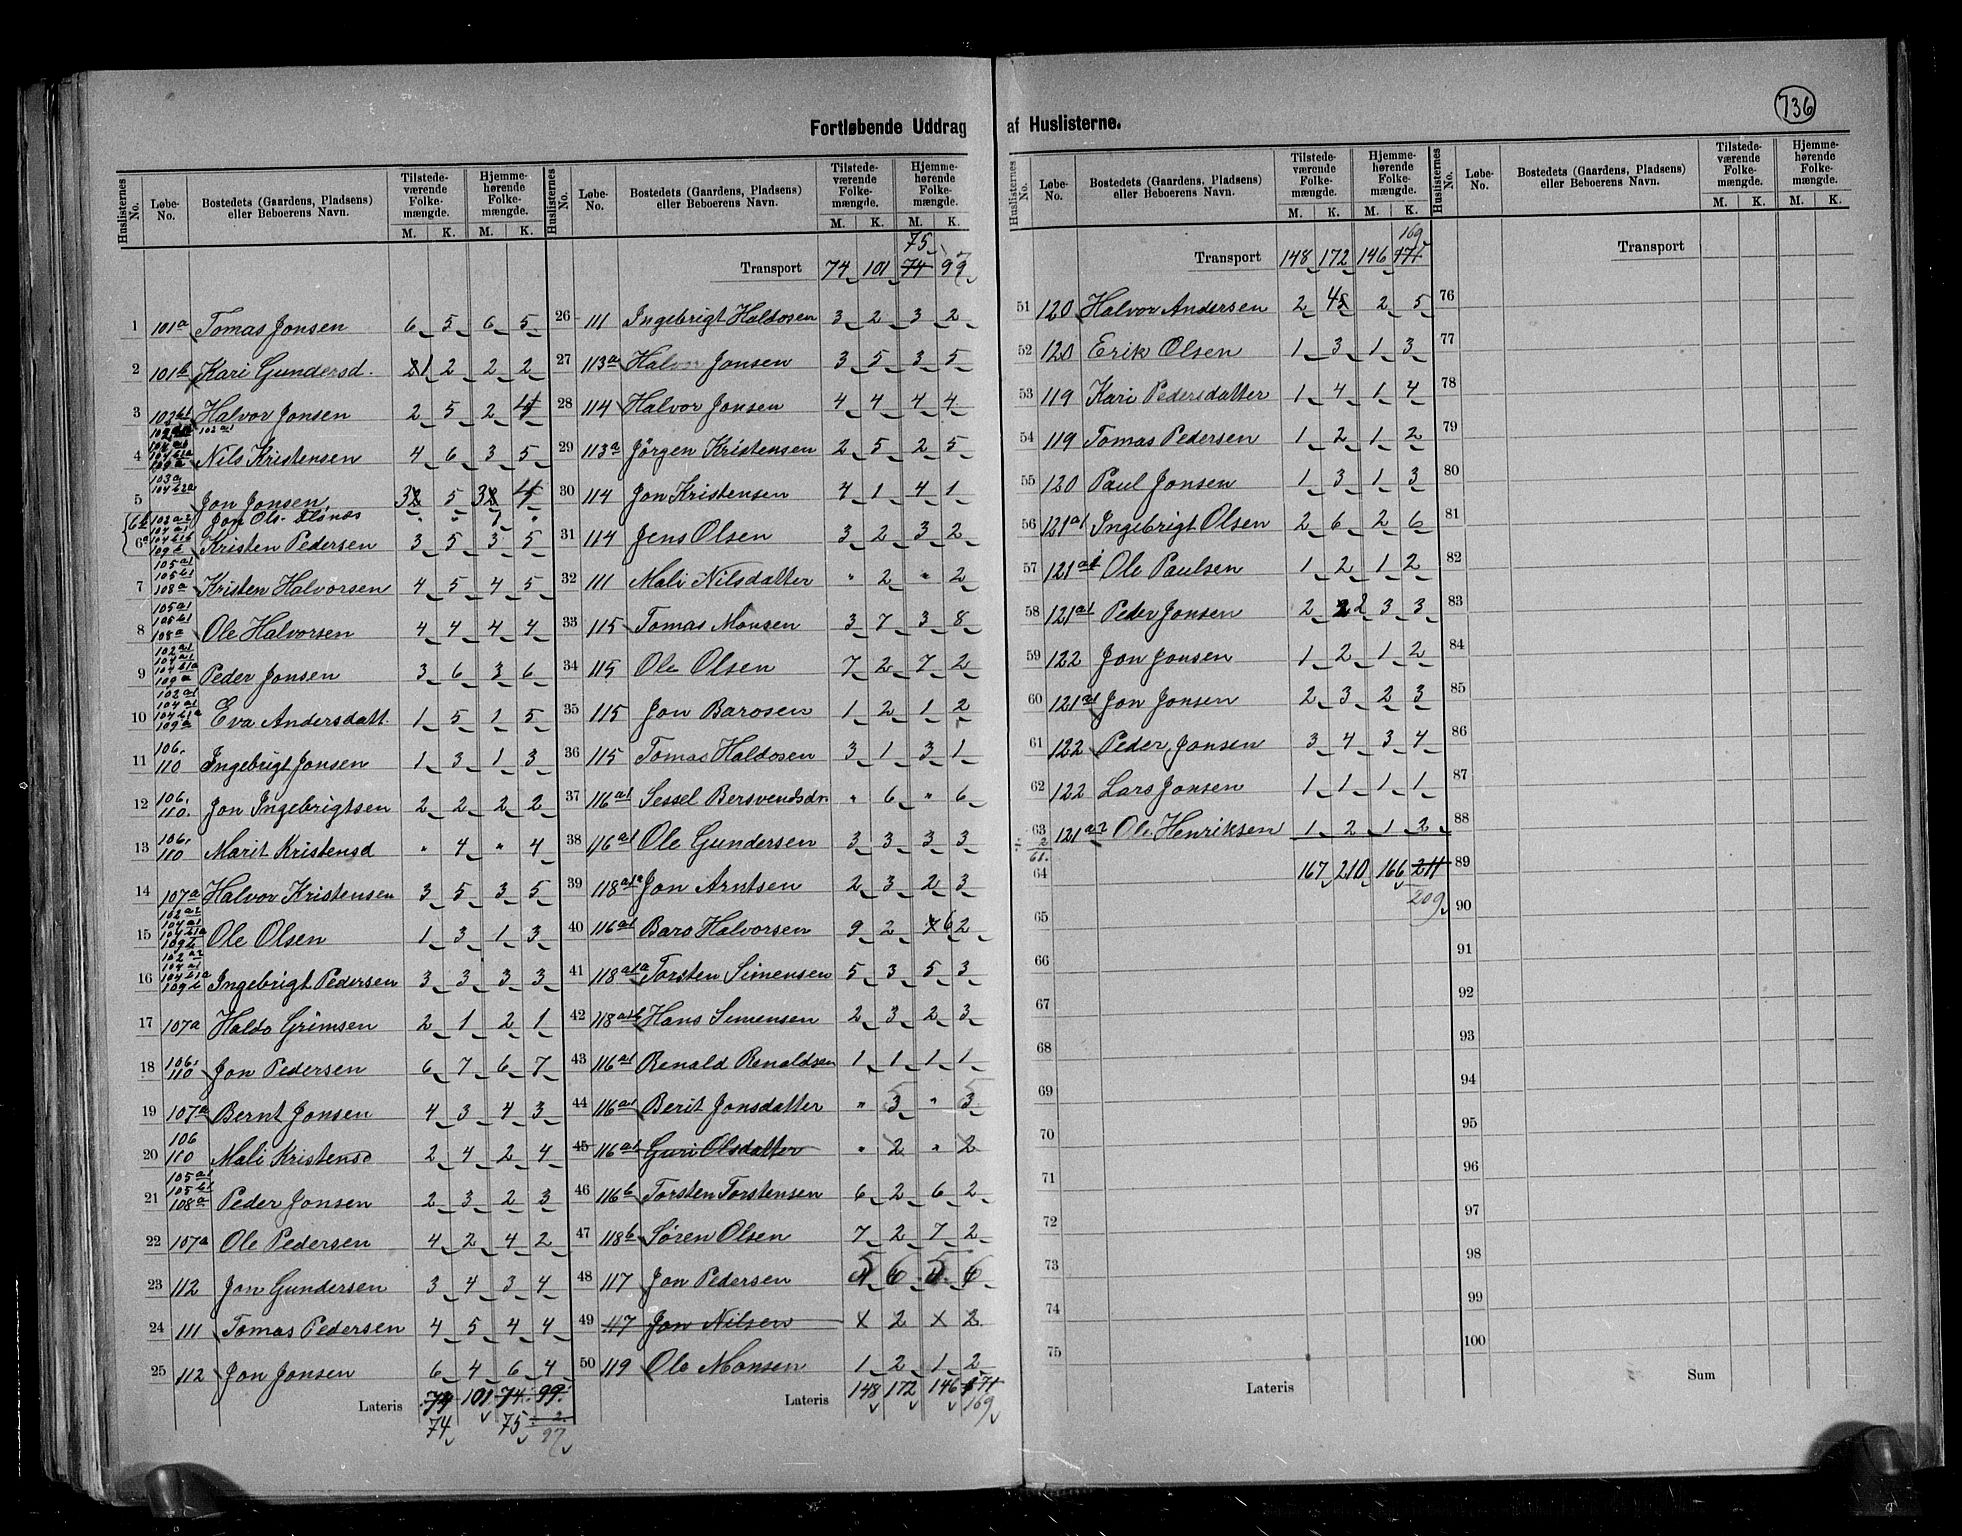 736
Fortløbende Uddrag af Huslisterne.
Huslisternes No. Løbe-No. Bostedets (Gaardens, Pladsens) eller Beboerens Navn. Tilstedeværende Folkemængde. Hjemmehørende Folkemængde.
M. K. M. K.
1 101a Tomas Jonsen 6 5 6 5
2 101b Kari Gundersd. 1 2 2 2
3 102b1 Halvor Jonsen 2 5 2 4
102a1
104a1
104b1a
4 109a Nils Kristensen 4 6 3 5
103a
104b2a
5 Jon Jonsen 3 5 3 4
6b 102a2 Jon Ols. " " 1 "
104a1
104b1b
6a 109b Kristen Pedersen 3 5 3 5
105a1
105b1
7 108a Kristen Halvorsen 4 5 4 5
105a1
105b1
8 108a Ole Halvorsen 4 4 4 4
102a1
104a1
104b1a
9 109a Peder Jonsen 3 6 3 6
102a1
104a1
104b1a
10 109a Eva Andersdatt. 1 5 1 5
106.
11 110 Ingebrigt Jonsen 1 3 1 3
106.
12 110. Jon Ingebrigtsen 2 2 2 2
106.
13 110 Marit Kristensd " 4 " 4
14 107a Halvor Kristensen 3 5 3 5
102a2
104a1
104b1a
15 109b Ole Olsen 1 3 1 3
102a2
104a1
104b1a
16 109b Ingebrigt Pedersen 3 3 3 3
17 107a Haldo Grimsen 2 1 2 1
106.
18 110 Jon Pedersen 6 7 6 7
19 107a Bernt Jonsen 4 3 4 3
106
20 110 Mali Kristensd 2 4 2 4
105a1
105b1
21 108a Peder Jonsen 2 3 2 3
22 107a Ole Pedersen 4 2 4 2
23 112 Jon Gundersen 3 4 3 4
24 111 Tomas Pedersen 4 5 4 4
25 112 Jon Jonsen 6 4 6 4
Lateris 79 101 74 99
74 75 2
97
Huslisternes No. Løbe-No. Bostedets (Gaardens, Pladsens) eller Beboerens Navn. Tilstedeværende Folkemængde. Hjemmehørende Folkemængde.
M. K. M. K.
75
Transport 74 101 74 97
26 111 Ingebrigt Haldosen 3 2 3 2
27 113a Halvor Jonsen 3 5 3 5
28 114 Halvor Jonsen 4 4 4 4
29 113a Jörgen Kristensen 2 5 2 5
30 114 Jon Kristensen 4 1 4 1
31 114 Jens Olsen 3 2 3 2
32 111 Mali Nilsdatter " 2 " 2
33 115 Tomas Monsen 3 7 3 8
34 115 Ole Olsen 7 2 7 2
35 115 Jon Barosen 1 2 1 2
36 115 Tomas Haldosen 3 1 3 1
37 116a1 Sessel Bersvendsdr " 6 " 6
38 116a1 Ole Gundersen 3 3 3 3
39 118a1a Jon Arntsen 2 3 2 3
40 116a1 Baro Halvorsen 9 2 7 6 2
41 118a1a Torsten Simensen 5 3 5 3
42 118a1b Hans Simensen 2 3 2 3
43 116a1 Renald Renaldsen 1 1 1 1
44 116a1 Berit Jonsdatter " 5 " 5
45 116a1 Guri Olsdatter " 2 " 2
46 116b Torsten Torstensen 6 2 6 2
47 118b Søren Olsen 7 2 7 2
48 117 Jon Pedersen 5 6 5 6
49 117 Jon Nilsen 2 2
50 119 Ole Monsen 1 2 1 2
Lateris 148 172 146 171
169
Huslisternes No. Løbe-No. Bostedets (Gaardens, Pladsens) eller Beboerens Navn. Tilstedeværende Folkemængde. Hjemmehørende Folkemængde.
M. K. M. K.
169
Transport 148 172 146 171
51 120 Halvor Andersen 2 4 5 2 5
52 120 Erik Olsen 1 3 1 3
53 119 Kari Pedersdatter 1 4 1 4
54 119 Tomas Pedersen 1 2 1 2
55 120 Paul Jonsen 1 3 1 3
56 121a1 Ingebrigt Olsen 2 6 2 6
57 121a1 Ole Paulsen 1 2 1 2
58 121a1 Peder Jonsen 2 2 3 3
59 122 Jon Jonsen 1 2 1 2
60 121a1 Jon Jonsen 2 3 2 3
61 122 Peder Jonsen 3 4 3 4
62 122 Lars Jonsen 1 1 1 1
63 121a2 Ole Henriksen 1 2 1 2
÷ 2
61.
64 167 210 166 211
209
65
66
67
68
69
70
71
72
73
74
75
Lateris
Huslisternes No. Løbe-No. Bostedets (Gaardens, Pladsens) eller Beboerens Navn. Tilstedeværende Folkemængde. Hjemmehørende Folkemængde.
M. K. M. K.
Transport
76
77
78
79
80
81
82
83
84
85
86
87
88
89
90
91
92
93
94
95
96
97
98
99
100
Sum